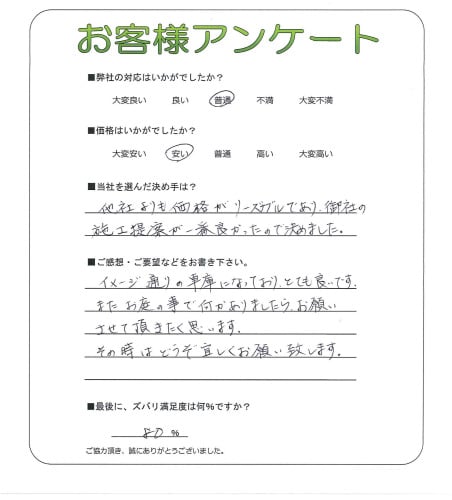 お客様アンケート
■弊社の対応はいかがでしたか?
大変良い 良い 普通 不満 大変不満
■価格はいかがでしたか?
大変安い 安い 普通 高い 大変高い
■当社を選んだ決め手は?
他社よりも価格がリーズナブルであり、御社の
施工提案が一番良かったので決めました。
■ご感想・ご要望などをお書き下さい。
イメージ通りの車庫になっており、とても良いです。
またお庭の事で何かありましたら、お願い
させて頂きたく思います。
その時はどうぞ宜しくお願い致します。
■最後に、ズバリ満足度は何%ですか?
80 %
ご協力頂き、誠にありがとうございました。